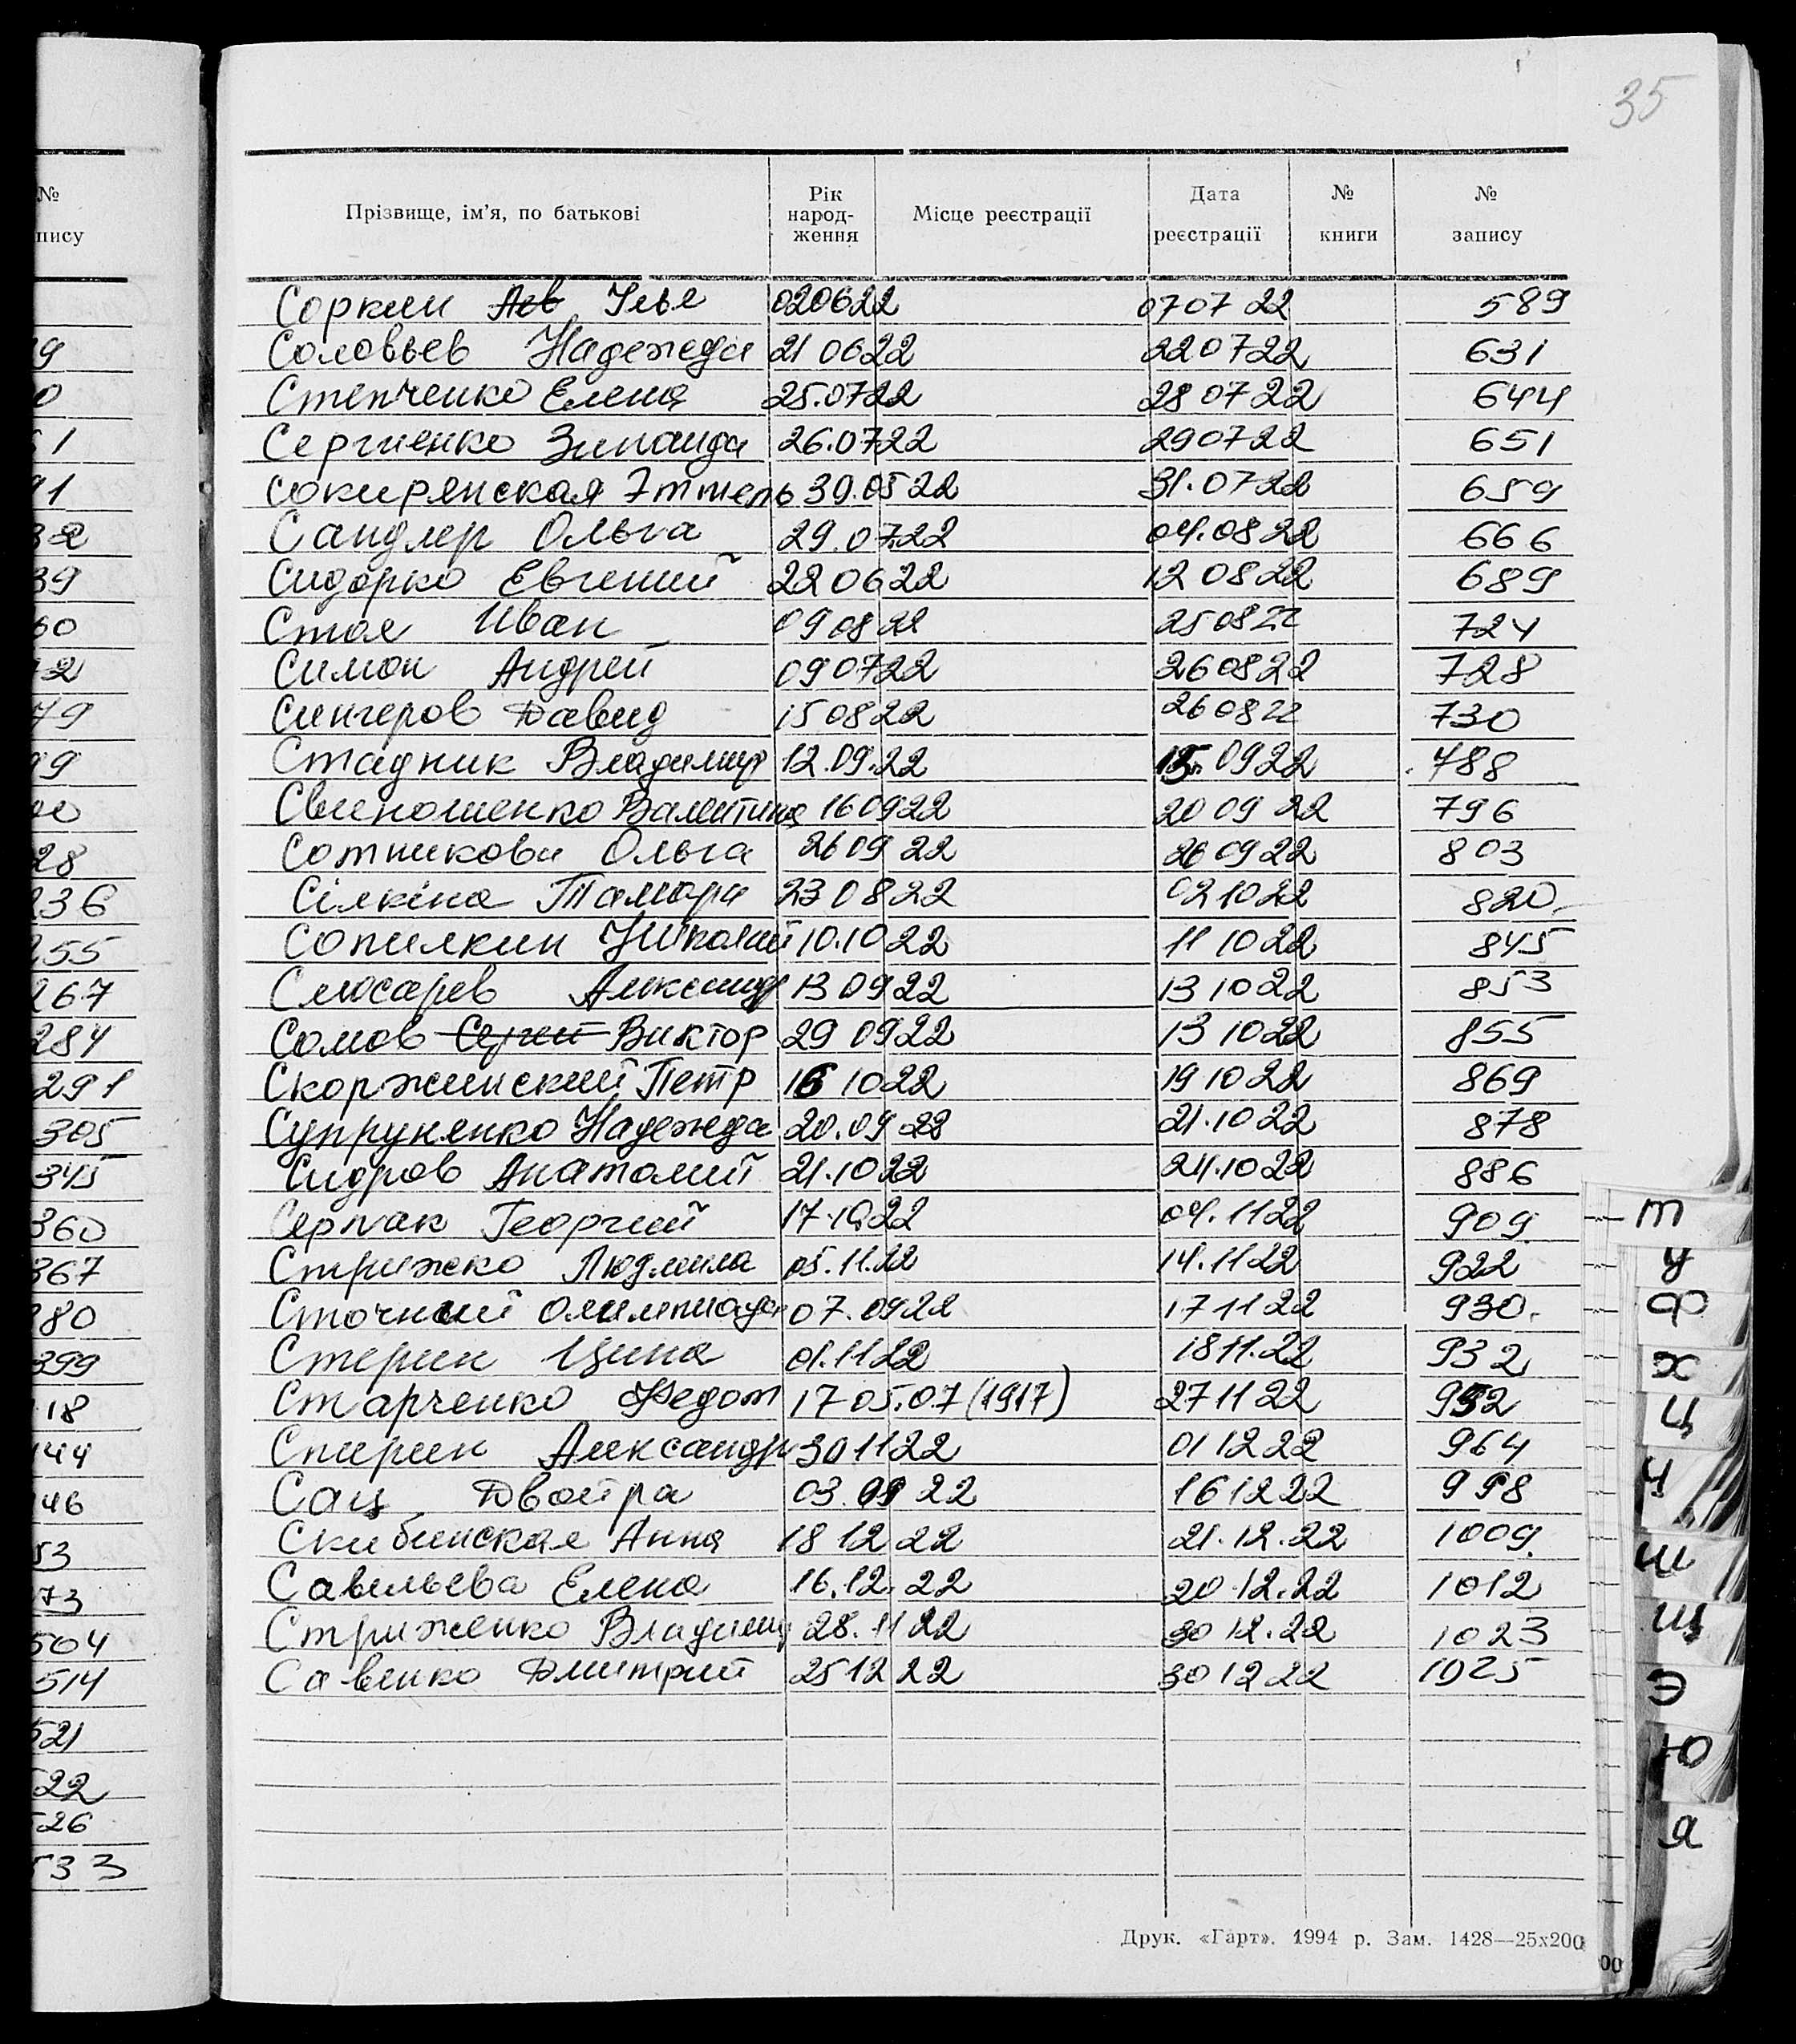 35
Прізвище, ім'я, по батькові Рік народ- ження Місце реєстрації Дата реєстрації № книги № запису
Соркин Лев Илья 020622 0707 22 589
Соловьев Надежда 21 0622 220722 631
Степченко Елена 25.0722 28 0722 644
Сергиенко Зинаида 26.0722 290722 651
Сокирянская Эттель 30.0522 31.0722 659
Сандлер Ольга 29.0722 04.0822 666
Сидорко Евгений 220622 12 0822 689
Стоя Иван 0908 22 250822 724
Симон Андрей 090722 260822 728
Сингеров Давид 150822 260822 730
Стадник Владимир 12.09.22 15.0922 788
Свиношенко Валентина 160922 20 09 22 796
Сотникова Ольга 2609 22 260922 803
Сілкіна Тамара 230822 021022 820
Сопилкин Николай 10.1022 11 1022 845
Слюсарев Александр 130922 131022 853
Сомов Сергей Виктор 29 0922 13 1022 855
Скоржинский Петр 16 1022 191022 869
Супруненко Надежда 20.09 22 21.1022 878
Сидров Анатолий 21.1022 24.1022 886
Серпак Георгий 17.1022 04.1122 909
Стрижко Людмила 05.11.22 14.1122 922
Сточный Олимпиада 07.0922 171122 930.
Стерин Цина 01.1122 1811.22 932
Старченко Федот 1705.07(1917) 271122 952
Спирин Александр 301122 011222 964
Сац Двойра 03.09 22 161222 998
Скибинская Анна 18 12 22 21.12.22 1009
Савельева Елена 16.12.22 20.12.22 1012
Стриженко Владимир 28.1122 30 12.22 1023
Савенко Дмитрий 2512 22 30 1222 1025
Друк. «Гарт». 1994 р. Зам. 1428—25х200
№
пису
236
255
267
284
291
305
345
360
367
380
399
418
504
514
521
522
526
533
т
у
ф
х
ц
ч
ш
щ
э
ю
я